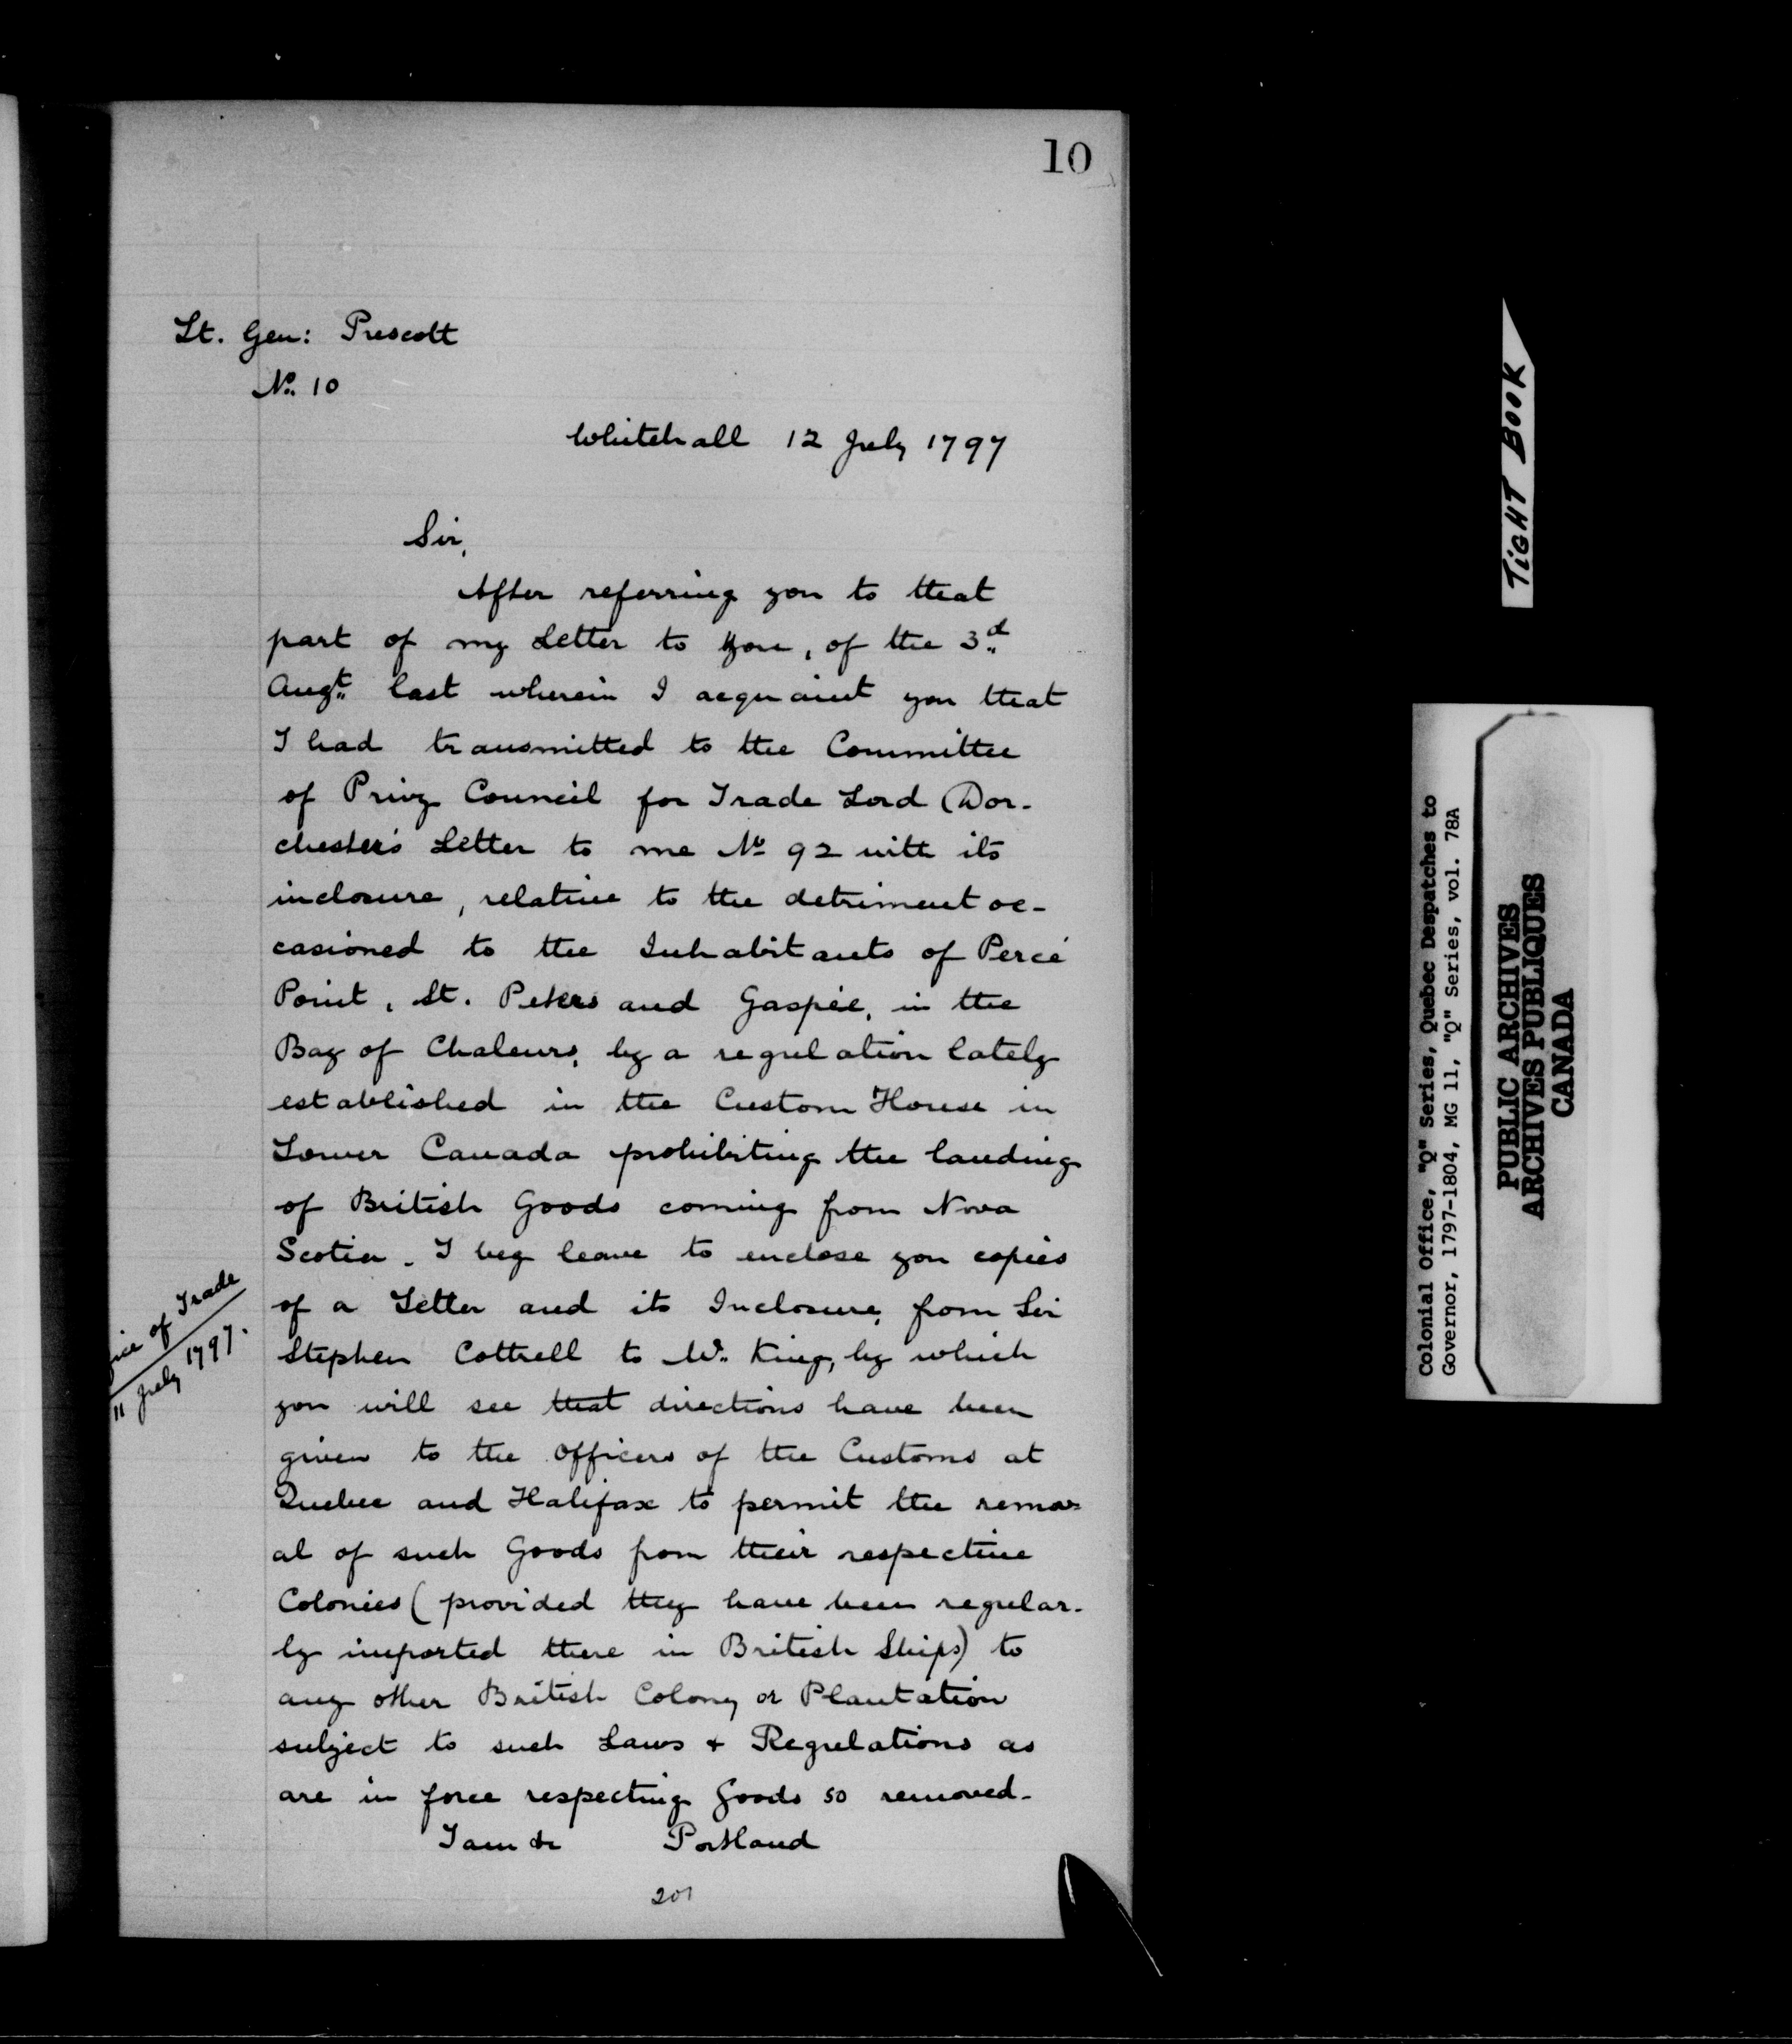 10
Lt. Gen: Prescott
No. 10
Whitehall 12 July 1797
Sir,
After referring you to that
part of my Letter to you, of the 3d
Augt. last wherein I acquaint you that
I had transmitted to the Committee
of Privy Council for Trade Lord Dor-
chester's Letter to me No 92 with its
inclosure, relative to the detriment oc-
casioned to the Inhabitants of Percé
Point, St. Peters and Gaspée, in the
Bay of Chaleurs, by a regulation lately
established in the Custom House in
Lower Canada prohibiting the landing
of British Goods coming from Nova
Scotia. I beg leave to enclose you copies
of a Letter and its Inclosure, from Sir
Stephen Cottrell to Mr. King, by which
you will see that directions have been
given to the Officers of the Customs at
Quebec and Halifax to permit the remov-
al of such Goods from their respective
Colonies (provided they have been regular-
ly imported there in British Ships) to
any other British Colony or Plantation
subject to such Laws & Regulations as
are in force respecting Goods so removed.
I am &c Portland
201
of Trade
11 July 1797.
TIGHT BOOK
Colonial Office, "Q" Series, Quebec Despatches to
Governor, 1797-1804, MG 11, "Q" Series, vol. 78A
PUBLIC ARCHIVES
ARCHIVES PUBLIQUES
CANADA